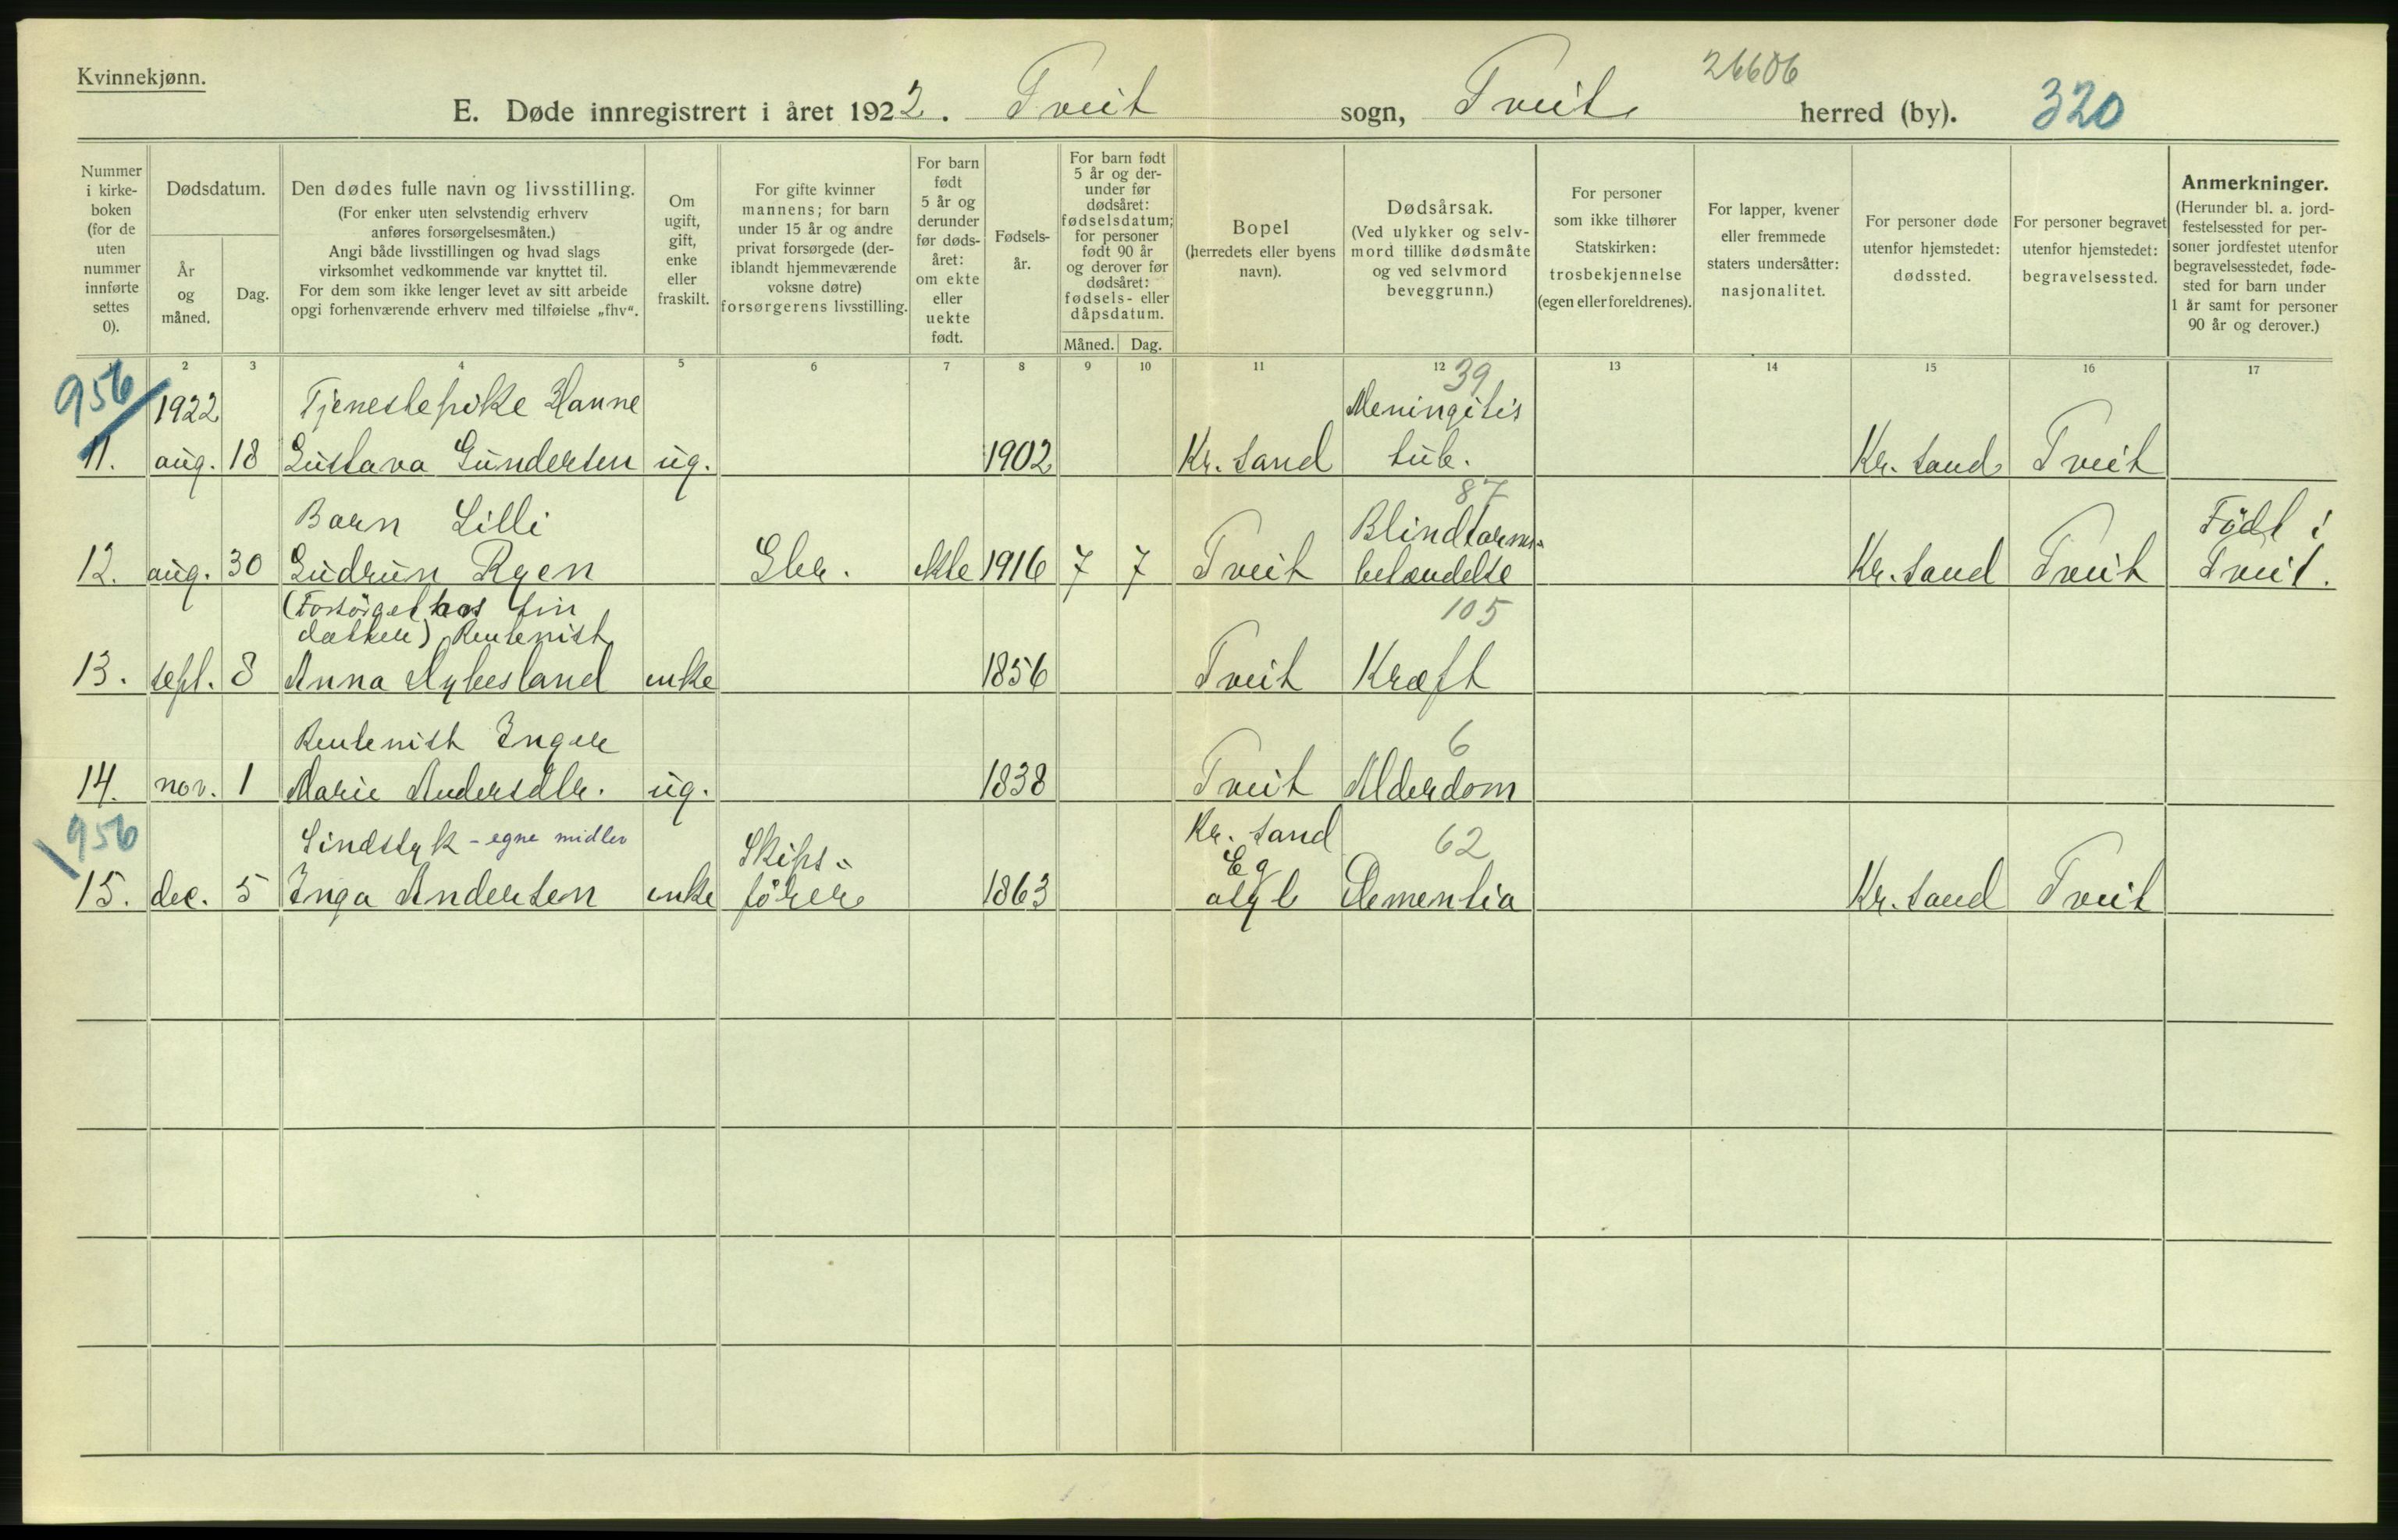 Kvinnekjønn.
26606
E. Døde innregistrert i året 1922. Tveit sogn, Tveit herred (by). 320
Nummer i kirkeboken (for de uten nummer innførte settes 0).
Dødsdatum.
År og måned.
Dag.
Den dødes fulle navn og livsstilling.
(For enker uten selvstendig erhverv
anføres forsørgelsesmåten.)
Angi både livsstillingen og hvad slags
virksomhet vedkommende var knyttet til.
For dem som ikke lenger levet av sitt arbeide
opgi forhenværende erhverv med tilføielse „fhv“.
Om
ugift,
gift,
enke
eller
fraskilt.
For gifte kvinner
mannens; for barn
under 15 år og andre
privat forsørgede (der-
iblandt hjemmeværende
voksne døtre)
forsørgerens livsstilling.
For barn
født
5 år og
derunder
før døds-
året:
om ekte
eller
uekte
født.
Fødsels-
år.
For barn født
5 år og der-
under før
dødsåret:
fødselsdatum;
for personer
født 90 år
og derover før
dødsåret:
fødsels- eller
dåpsdatum.
Måned. Dag.
Bopel
(herredets eller byens
navn).
Dødsårsak.
(Ved ulykker og selv-
mord tillike dødsmåte
og ved selvmord
beveggrunn.)
For personer
som ikke tilhører
Statskirken:
trosbekjennelse
(egen eller foreldrenes).
For lapper, kvener
eller fremmede
staters undersåtter:
nasjonalitet.
For personer døde
utenfor hjemstedet:
dødssted.
For personer begravet
utenfor hjemstedet:
begravelsessted.
Anmerkninger.
(Herunder bl. a. jord-
festelsessted for per-
soner jordfestet utenfor
begravelsesstedet, føde-
sted for barn under
1 år samt for personer
90 år og derover.)
2 3 4 5 6 7 8 9 10 11 12 13 14 15 16 17
956 39
1922 Tjenestepike Hanne Meningitis
11. aug. 18 Gustava Gundersen ug. 1902 Kr. sand tub. Kr. sand Tveit
87
Barn Lilli Blindtarms- Födt i
12. aug. 30 Gudrun Ryen Gbr. ekte 1916 7 7 Tveit betændelse Kr. sand Tveit Tveit.
(Forsörget hos sin 105
datter) Rentenist
13. sept. 8 Anna Dybesland enke 1856 Tveit Kræft
Rentenist Inger 6
14. nov. 1 Marie Andersdtr. ug. 1838 Tveit Alderdom
956 Sindssyk - egne midler Skips- Kr. sand 62
Eg
15. dec. 5 Inga Andersen enke förer 1863 asyl Dementia Kr. sand Tveit